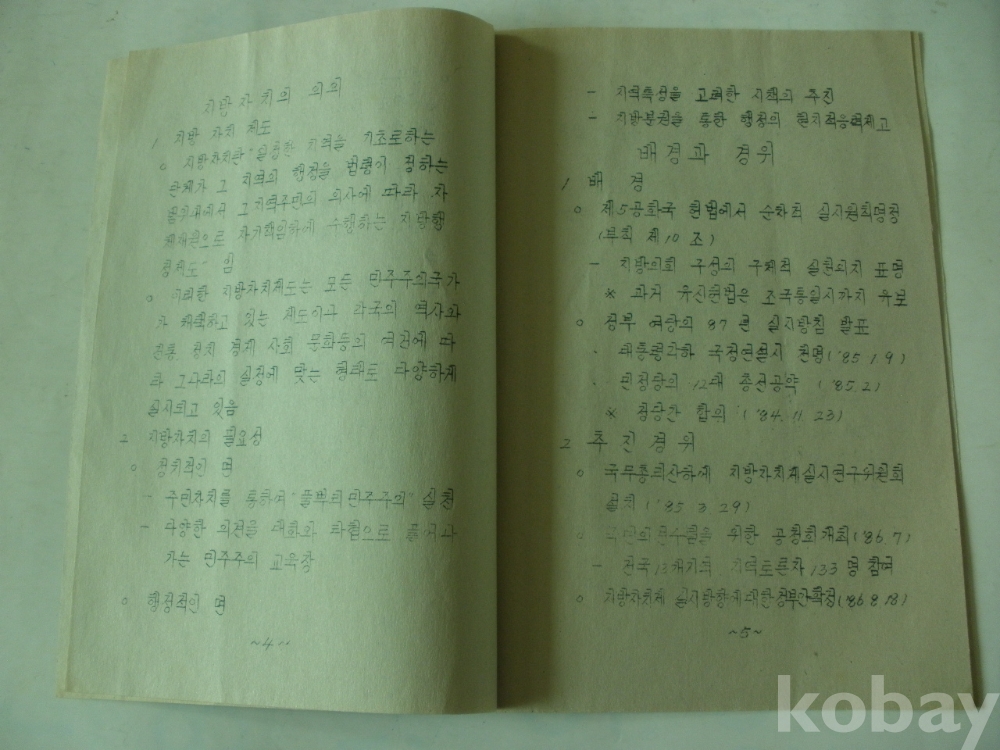 지방자치의 의의
1. 지방 자치 제도
o 지방자치란 "일정한 지역을 기초로하는
단체가 그 지역의 행정을 법령이 정하는
범위내에서 그지역주민의 의사에 따라 자
체재원으로 자기책임하에 수행하는 지방행
정제도" 임
o 이러한 지방자치제도는 모든 민주주의국가
가 채택하고 있는 제도이나 각국의 역사와
전통, 정치 경제 사회 문화등의 여건에 따
라 그나라의 실정에 맞는 형태로 다양하게
실시되고 있음
2. 지방자치의 필요성
o 정치적인 면
- 주민자치를 통하여 "풀뿌리민주주의" 실천
- 다양한 의견을 대화와 타협으로 풀어나
가는 민주주의 교육장
o 행정적인 면
~4~
- 지역특성을 고려한 시책의 추진
- 지방분권을 통한 행정의 현지적응력제고
배경과 경위
1 배 경
o 제5공화국 헌법에서 순차적 실시원칙명정
(부칙 제10조)
- 지방의회 구성의 구체적 실천의지 표명
※ 과거 유신헌법은 조국통일시까지 유보
o 정부 여당의 87년 실시방침 발표
· 대통령각하 국정연설시 천명('85.1.9)
· 민정당의 12대 총선공약 ('85.2)
※ 정당간 합의 ('84.11.23)
2 추진경위
o 국무총리산하에 지방자치제실시연구위원회
설치 ('85.3.29)
o 국민의견수렴을 위한 공청회개최('86.7)
- 전국13개지역 지역토론자 133명 참여
o 지방자치제 실시방향에대한정부안확정('86.8.18)
~5~
kobay